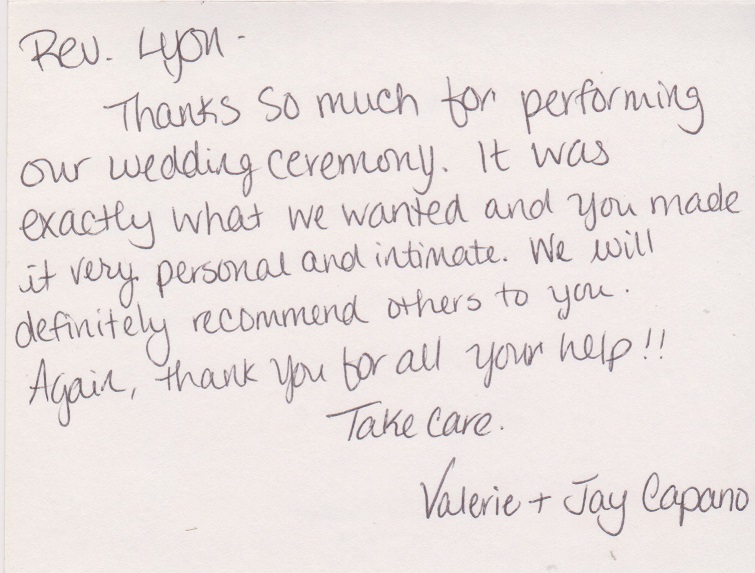 Rev. Lyon -
Thanks so much for performing
our wedding ceremony. It was
exactly what we wanted and you made
it very personal and intimate. We will
definitely recommend others to you.
Again, thank you for all your help!!
Take care.
Valerie + Jay Capano